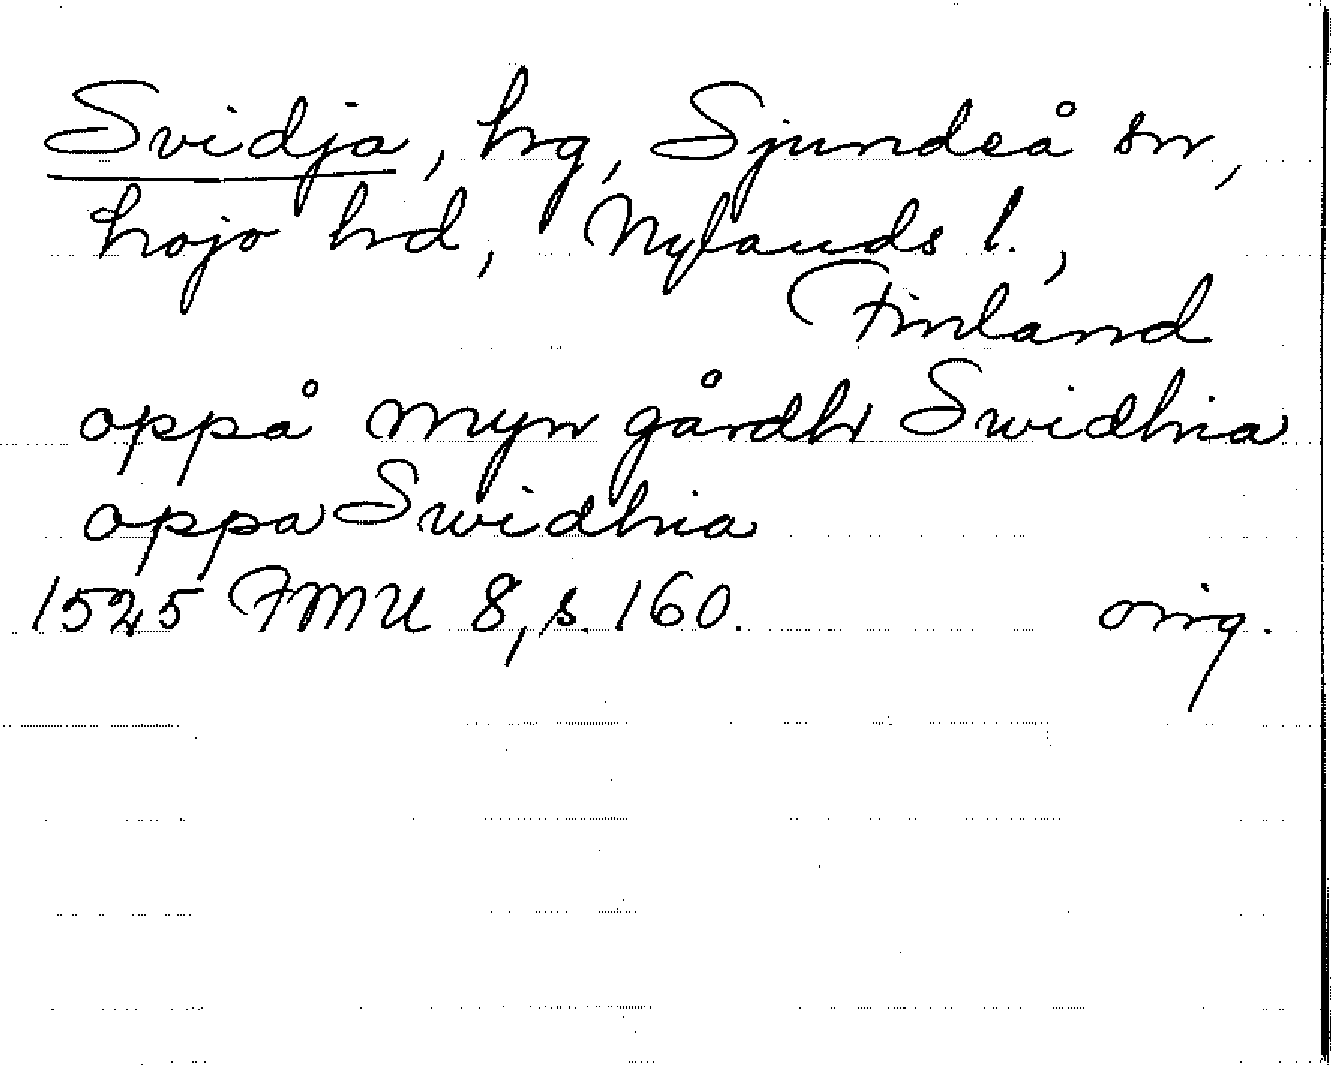 Svidja, hrg, Sjundeå sn,
Lojo hrd, Nylands l.,
Finland
oppå myn gårdh Swidhia
oppa Swidhia
1525 FMU 8, s. 160. orig.